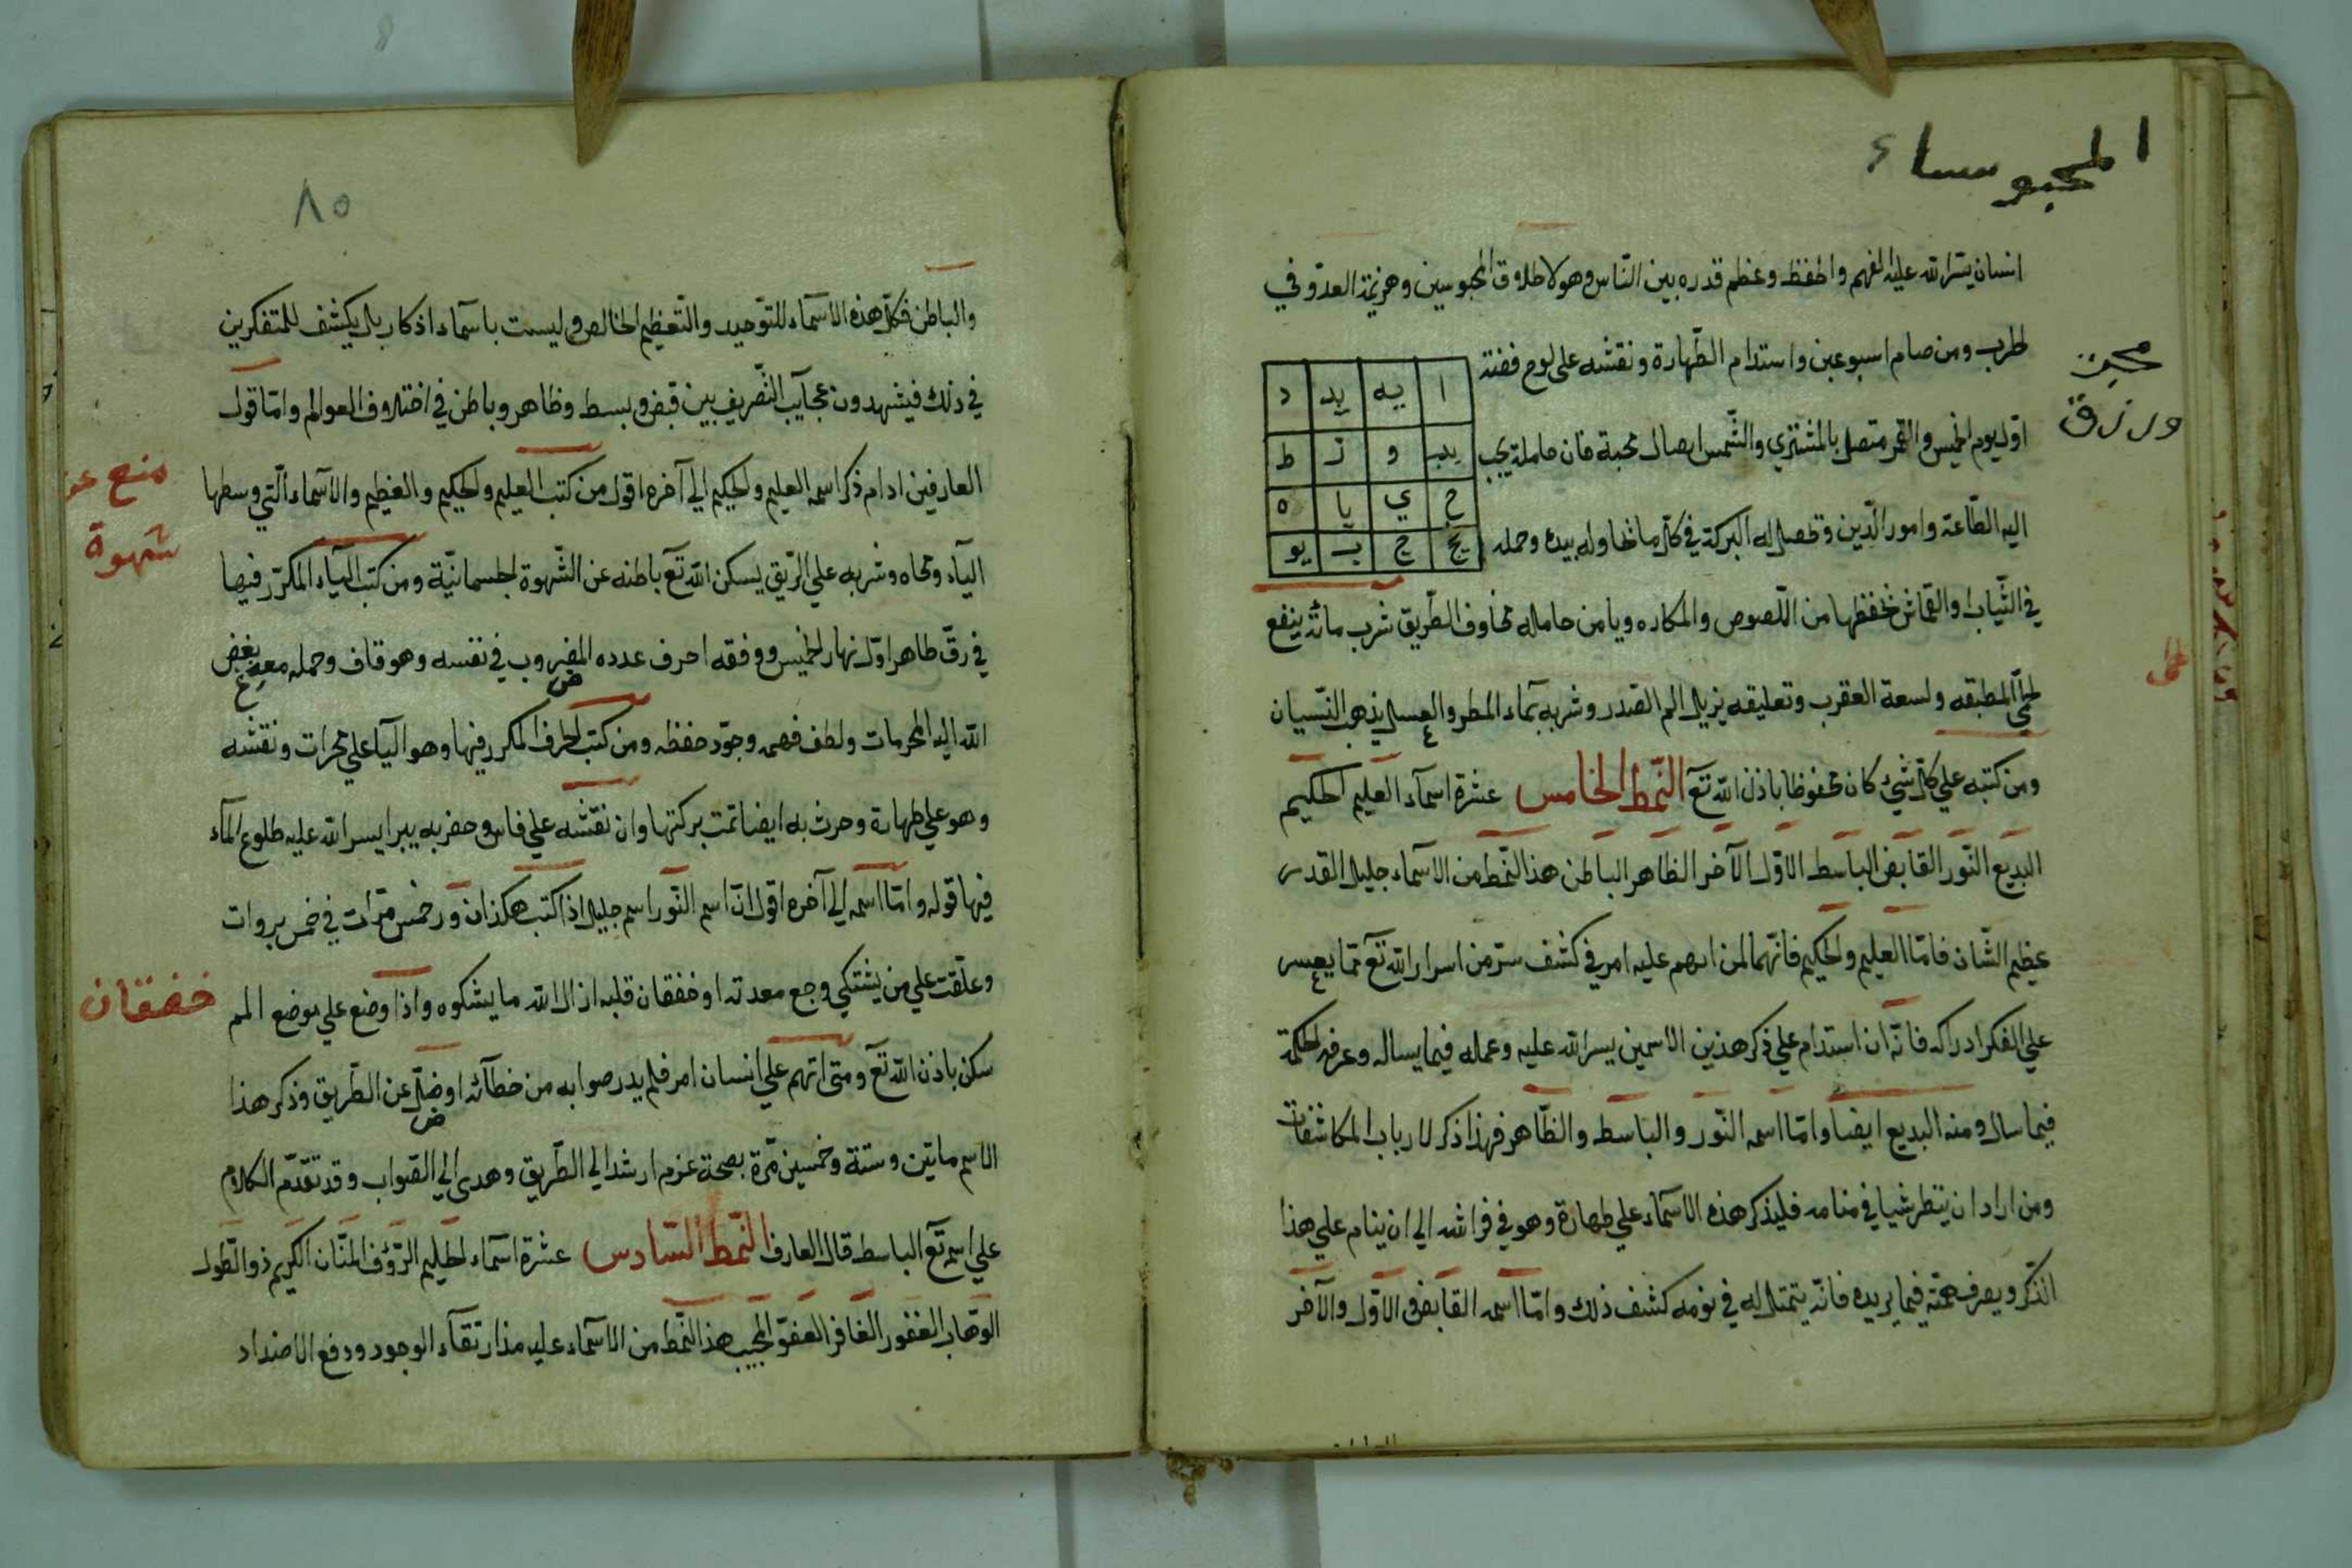 المحبوساء
انسان يسر الله عليه الفهم والحفظ وعظم قدره بين الناس وهو لاطلاق المحبوسين وهزيمة العدو في
الحرب ومن صام اسبوعين واستدام الطهارة ونقشه على لوح فضة
محبة
ورزق
اول يوم الخميس والقمر متصل بالمشتري والشمس اتصال محبة فان حامله يحبب
اليه الطاعة وامور الدين وتحصل له البركة في كل ما تحاوله بيده وحمله
ا يه يد د
يب و ز ط
ح ي يا ه
يج ج ب يو
في الثياب والقماش تحفظها من اللصوص والمكاره ويامن حامله مخاوف الطريق شرب مائه ينفع
لحمى المطبقه ولسعة العقرب وتعليقه يزيل الم الصدر وشربه بماء المطر والعسل يذهب النسيان
حمى
ومن كتبه علي كل شيء كان محفوظا باذن الله تع النمط الخامس عشرة اسمآء العليم الحكيم
البديع النور القابض الباسط الاول الآخر الظاهر الباطن هذا النمط من الاسماء جليل القدر
عظيم الشان فاما العليم والحكيم فانهما لمن ابهم عليه امر في كشف سر من اسرار الله تع مما يعسر
علي الفكر ادراكه فانه ان استدام علي ذكر هذين الاسمين يسر الله عليه وعمله فيما يساله وعرفه الحكمة
فيما سال ومنه البديع ايضا واما اسمه النور والباسط والظاهر فهذا ذكر لارباب المكاشفات
ومن اراد ان ينظر شيا في منامه فليذكر هذه الاسماء علي طهارة وهو في فراشه الي ان ينام علي هذا
الذكر ويصرف همته فيما يريده فانه يتمثل له في نومه كشف ذلك واما اسمه القابض الاول والآخر
٨٥
والباطن فكل هذه الاسماء للتوحيد والتعظيم الخالص وليست باسماء اذكار بل يكشف للمتفكرين
في ذلك فيشهدون عجايب التصريف بين قبض وبسط وظاهر وباطن في اختلاف العوالم واما قول
العارفين ادام ذكر اسمه العليم والحكيم الي آخره اقول من كتب العليم والحكيم والعظيم والاسماء التي وسطها
منع عن
شهوة
اليآء ومحاه وشربه علي الريق يسكن الله تع باطنه عن الشهوة الجسمانية ومن كتب اليآء المكرر فيها
في رق طاهر اول نهار الخميس ووفقه احرف عدده المضروب في نفسه وهو قاف وحمله معه بغض
الله اليه المحرمات ولطف فهمه وجود حفظه ومن كتب الحرف المكرر فيها وهو اليا علي محراث ونقشه
وهو علي طهارة وحرث به ايضا تمت بركتها وان نقشه علي فاس وحفر به بيرا يسر الله عليه طلوع المآء
فيها قوله واما اسمه الي آخره اقول ان اسم النور اسم جليل اذا كتب هكذا ن و ر خمس مرات في خمس بروات
وعلقت علي من يشتكي وجع معدته او خفقان قلبه ازال الله ما يشكوه واذا وضع علي موضع الم
خفقان
سكن باذن الله تع ومتى اتهم علي انسان امر فلم يدر صوابه من خطائه او ضل عن الطريق وذكر هذا
الاسم ماتين وستة وخمسين مرة بصحة عزم ارشد الي الطريق وهدى الي الصواب وقد تقدم الكلام
علي اسم تع الباسط قال العارف النمط السادس عشرة اسماء الحليم الرؤف المنان الكريم ذو الطول
الوهاب الغفور الغافر العفو المجيب هذا النمط من الاسماء عليه مدار تقآء الوجود ودفع الاضداد